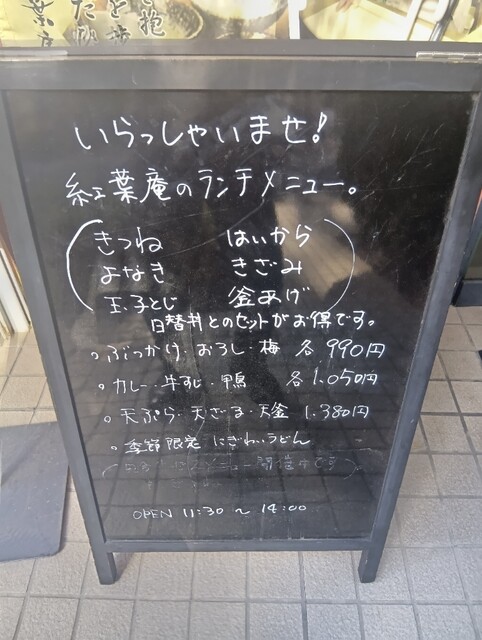 いらっしゃいませ!
紅葉庵のランチメニュー。
きつね はいから
よなき きざみ
玉子とじ 釜あげ
日替丼とのセットがお得です。
。ぶっかけ・おろし・梅 各990円
。カレー・牛すじ・鴨 各1.050円
。天ぷら・天ざる・天釜 1.380円
。季節限定 にぎわいうどん
OPEN 11:30 ~ 14:00